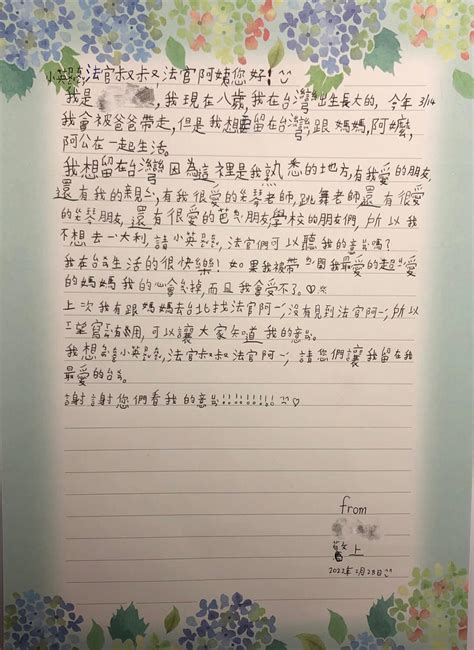 小英總統 法官叔叔, 法官阿姨您好!
我是 , 我現在八歲, 我在台灣出生長大的, 今年 3/14
我會被爸爸帶走, 但是我想要留在台灣跟媽媽, 阿嬤,
阿公在一起生活。
我想留在台灣因為這裡是我熟悉的地方, 有我愛的朋友,
還有我的親人, 有我很愛的琴老師, 跳舞老師還有很愛
的朋友, 還有很愛的芭 朋友, 學校的朋友們, 所以我
不想去義大利, 請小英 , 法官們可以聽我的意 嗎?
我在台 生活的很快樂! 如果我被帶 開我最愛的超 愛
的媽媽 我的心會 掉, 而且我會受不了。♡
上次我有跟媽媽去台北找法官阿一, 沒有見到法官阿一, 所以
希望寫 有用, 可以讓大家知道我的意 。
我想 小英 , 法官叔叔法官阿一, 請您們讓我留在我
最愛的台 。
謝謝您們看我的意 !!!!!!!!!! ♡
from
敬上
2022年2月28日